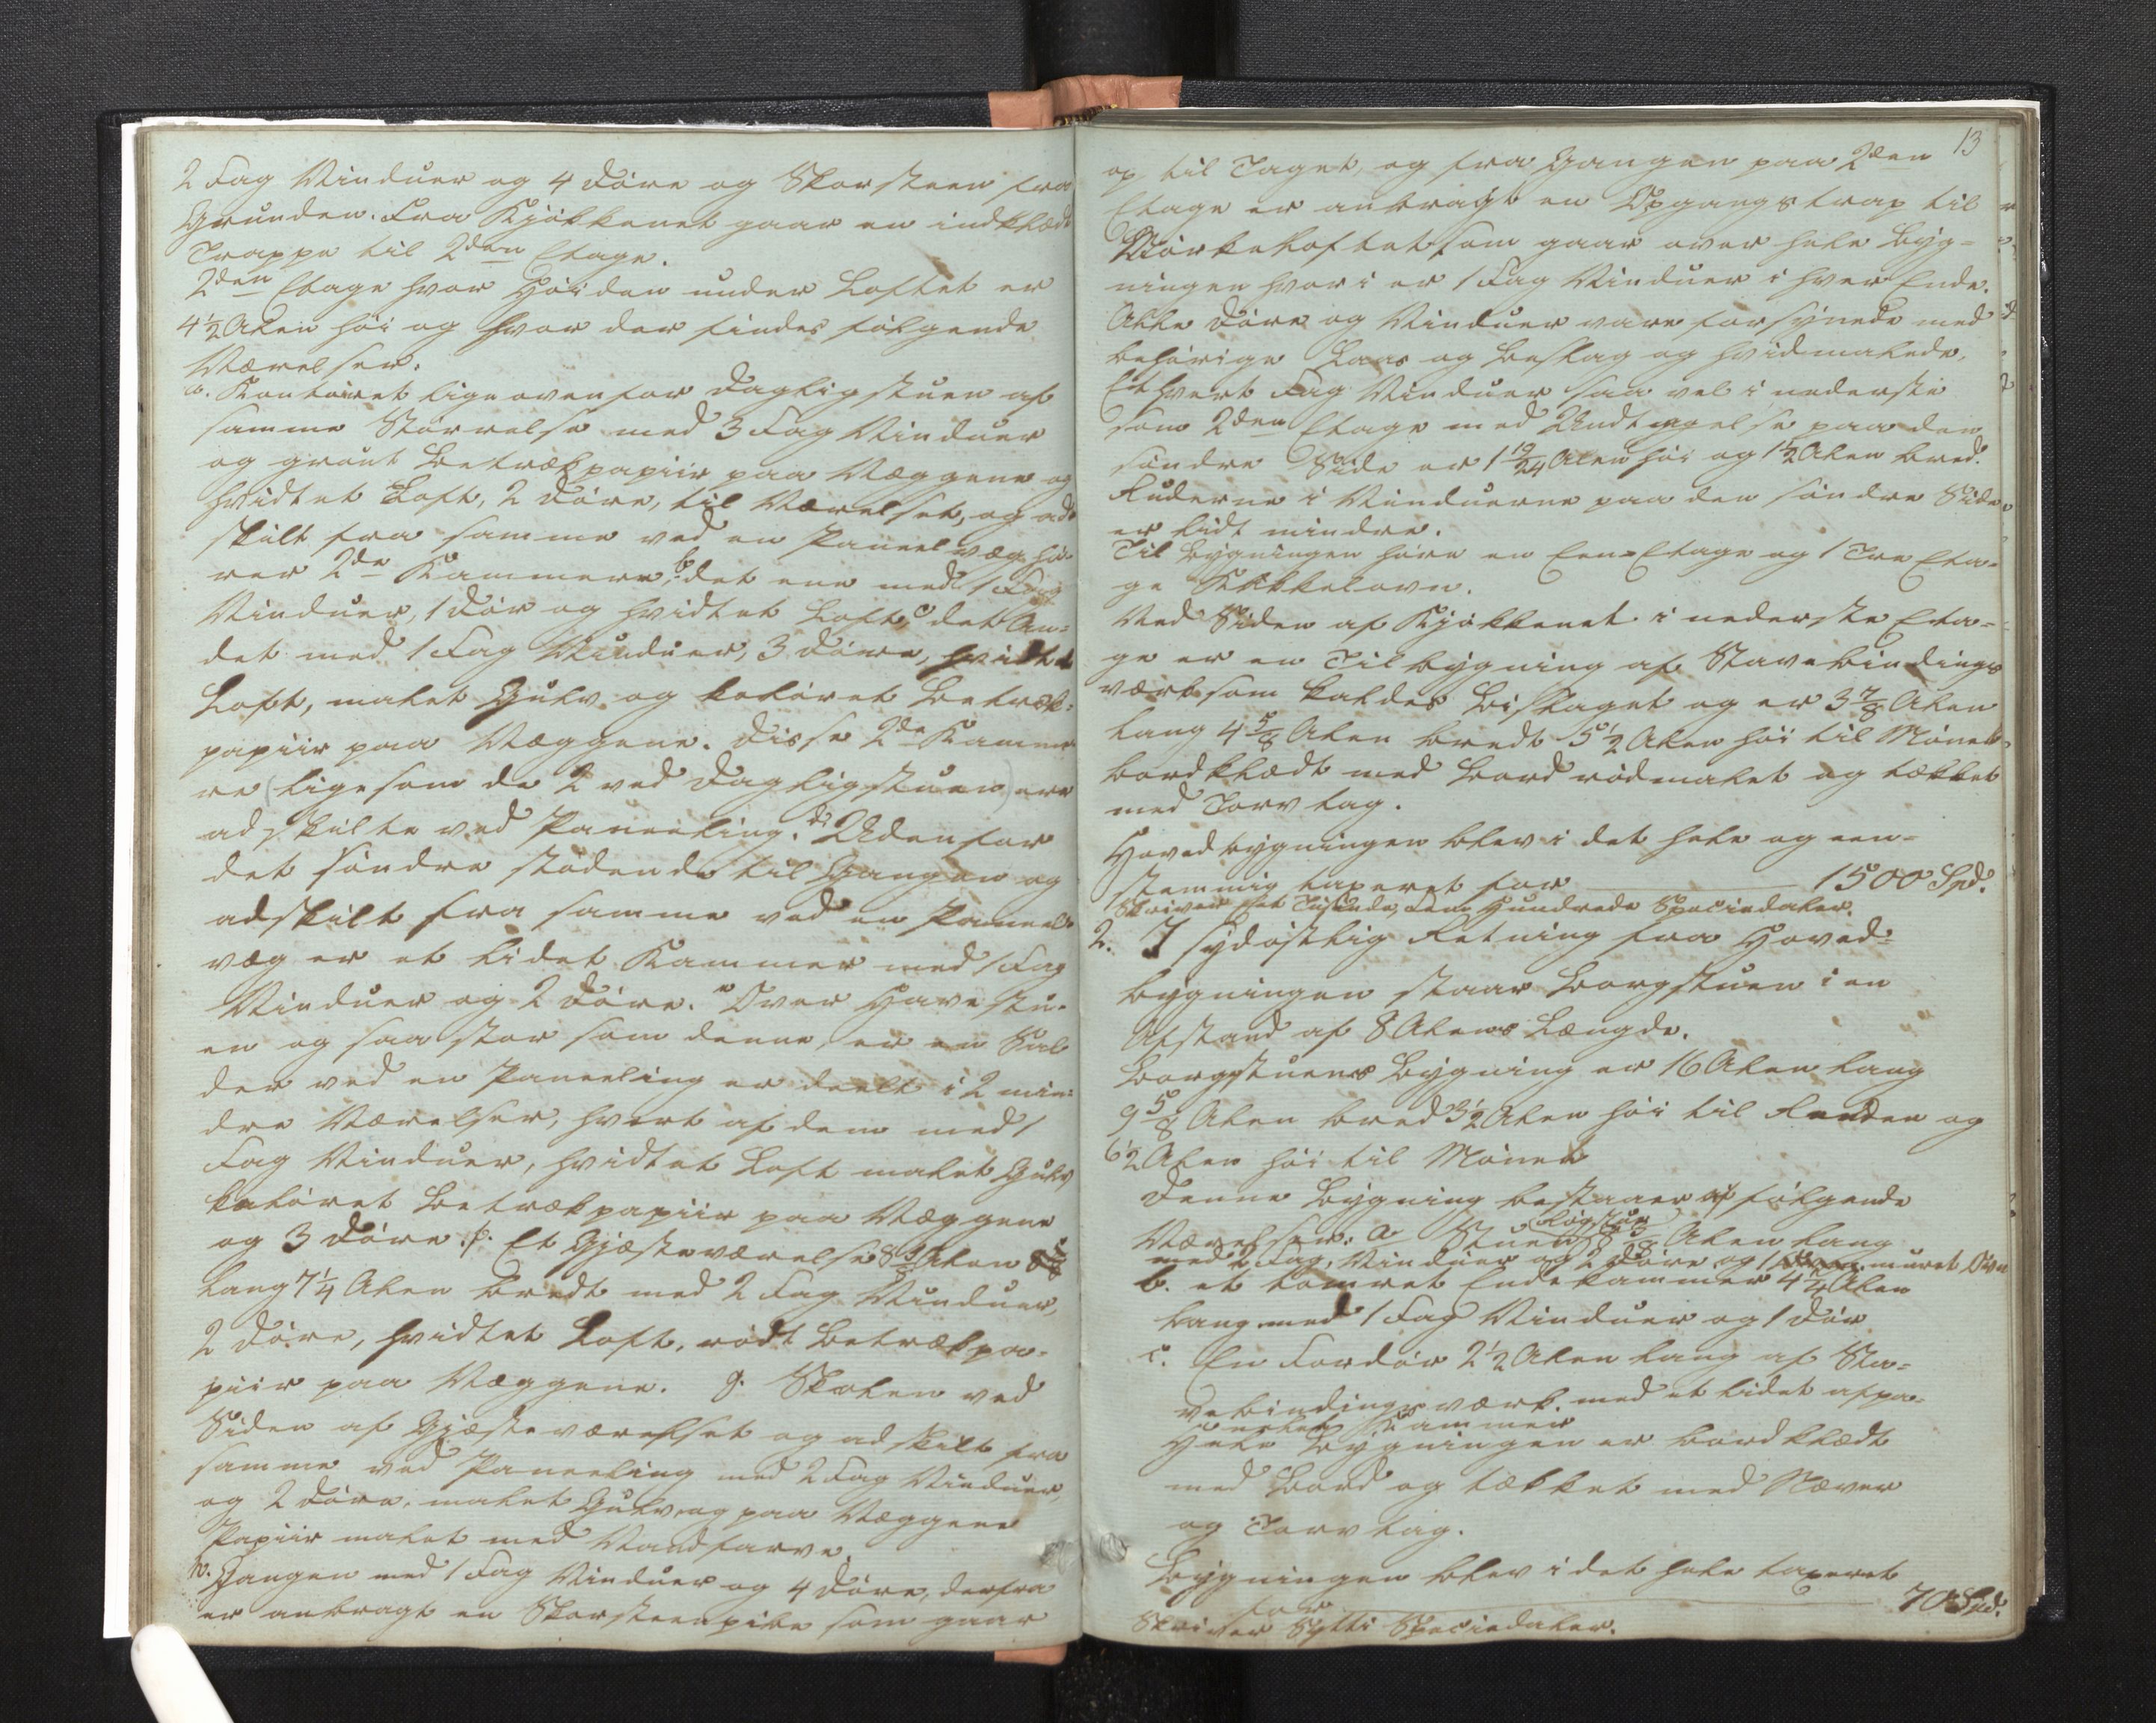 2 Fag Vinduer og 4 Døre og Skorsteen fra
Grunden. Fra Kjøkkenet gaar en indklædt
Trappe til 2den Etage.
2den Etage hvor Høiden under Loftet er
4½ Alen høi og hvor der findes følgende
Værelser:
a. Kontoiret lige ovenfor Dagligstuen af
samme Størrelse med 3 Fag Vinduer
og grønt Betrækpapiir paa Væggene og
hvidtet Loft, 2 Døre, til Værelset, og ad-
skilt fra samme ved en Paneelvæg hø-
rer 2de Kammere, b. det ene med 1 Fag
Vinduer, 1 Dør og hvidtet Loft, c det An-
det med 1 Fag Vinduer, 3 Døre, hvidtet
Loft, malet Gulv og koløret Betræk-
papiir paa Væggene. Disse 2de Kamme-
re (ligesom de 2 ved Dagligstuen) ere
adskilte ved Paneeling. d. Udenfor
det søndre stødende til Gangen og
adskilt fra samme ved en Paneel-
væg er et lidet Kammer med 1 Fag
Vinduer og 2 Døre. e Over Havestu-
en og saa stor som denne, er en Sal
der ved en Paneeling er deelt i 2 min-
dre Værelser, hvert af dem med 1
Fag Vinduer, hvidtet Loft malet Gulv
koløret Betrækpapiir paa Væggene
og 3 Døre. f. Et Gjæsteværelse Alen 8⅝
lang 7¼ Alen bredt med 2 Fag Vinduer,
2 Døre, hvidtet Loft, rødt Betrækpa-
piir paa Væggene. g. Skolen ved
Siden af Gjæsteværelset og adskilt fra
samme ved Paneeling med 2 Fag Vinduer,
og 2 Døre, malet Gulv, og paa Væggene
Papiir malet med Vandfarve.
h. Gangen med 1 Fag Vinduer og 4 Døre, derfra
er anbragt en Skorsteenpibe som gaar
13
op til Taget, og fra Gangen paa 2den
Etage er anbragt en Opgangstrap til
Mørkeloftet som gaar over hele Byg-
ningen hvori er 1 Fag Vinduer i hver Ende.
Alle Døre og Vinduer vare forsynede med
behørige Laas og Beslag og hvidmalede.
Ethvert Fag Vinduer saa vel i nederste
som 2den Etage med Undtagelse paa den
søndre Side er 1 19/24 Alen høi og 1½ Alen bred.
Ruderne i Vinduerne paa den søndre Side
er lidt mindre.
Til Bygningen høre en Een-Etage og 1 Tre Eta-
ge Kakkelovn.
Ved Siden af Kjøkkenet i nederste Eta-
ge er en Tilbygning af Stavebindings
værk som kaldes Bislaget og er 3⅞ Alen
lang 4⅝ Alen bredt 5½ Alen høi til Mønet
bordklædt med Bord rødmalet og tækket
med Torvtag.
Hovedbygningen blev i det hele og een-
stemmig taxeret for 1500 Spd.
Skriver Et Tusinde, Fem Hundrede Speciedaler.
2. I sydøstlig Retning fra Hoved-
bygningen staar Borgstuen i en
Afstand af 8 Alens Længde.
Borgstuens Bygning er 16 Alen lang
9⅝ Alen bred 3½ Alen høi til Randen og
6½ Alen høi til Mønet
Denne Bygning bestaaer af følgende
Røgstue
Værelser: a Stuen 8⅝ Alen lang
med 2 Fag Vinduer og 2 Døre og 1 muret Ovn
b. et tømret Endekammer 4¼ Alen
lang med 1 Fag Vinduer og 1 Dør
c. En Fordør 2½ Alen lang af Sta-
vebindingsværk. med et lidet afpa-
nelet Kammer
Hele Bygningen er bordklædt
med Bord og tækket med Næver
og Torvtag.
Bygningen blev i det hele taxeret
for 70 Spd.
Skriver Sytti Speciedaler.